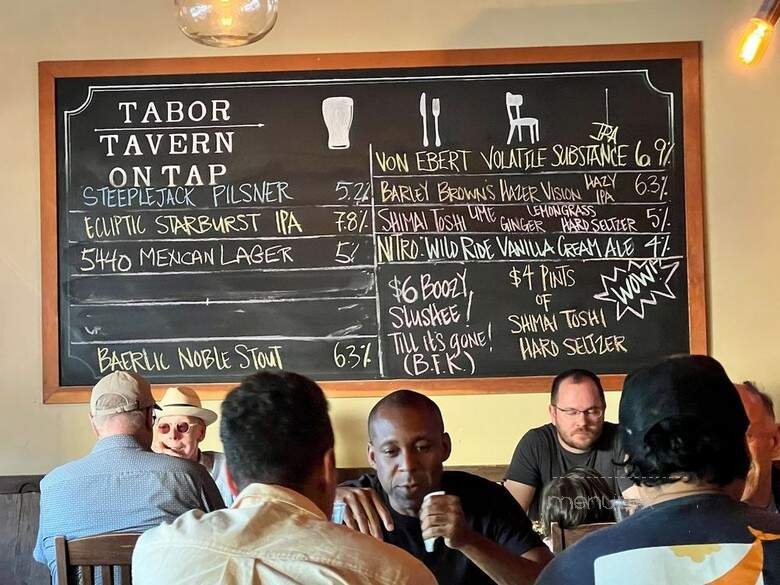 TABOR
TAVERN
ON TAP
STEEPLEJACK PILSNER 5.2%
ECLIPTIC STARBURST IPA 7.8%
5440 MEXICAN LAGER 5%
BAERLIC NOBLE STOUT 6.3%
VON EBERT VOLATILE SUBSTANCE IPA 6.9%
BARLEY BROWN'S HAZER VISION HAZY IPA 6.3%
SHIMAI TOSHI LIME GINGER LEMONGRASS HARD SELTZER 5%
NITRO: WILD RIDE VANILLA CREAM ALE 4%
$6 BOOZY
SLUSHEE!
TILL IT'S GONE!
(B.F.K.)
$4 PINTS
OF
SHIMAI TOSHI
HARD SELTZER
WOW!
menupix